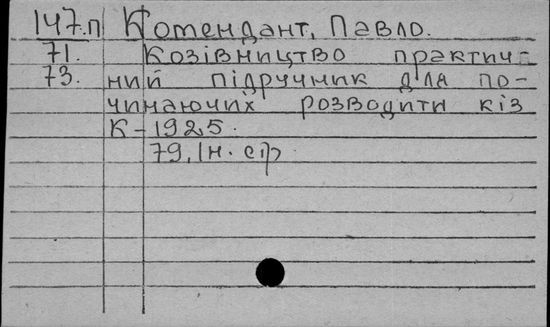 147.п Комендант, Павло.
71. Козівництво практич-
73. ний підручник для по-
чинаючих розводити кіз
К - 1925.
79, Ін. стр